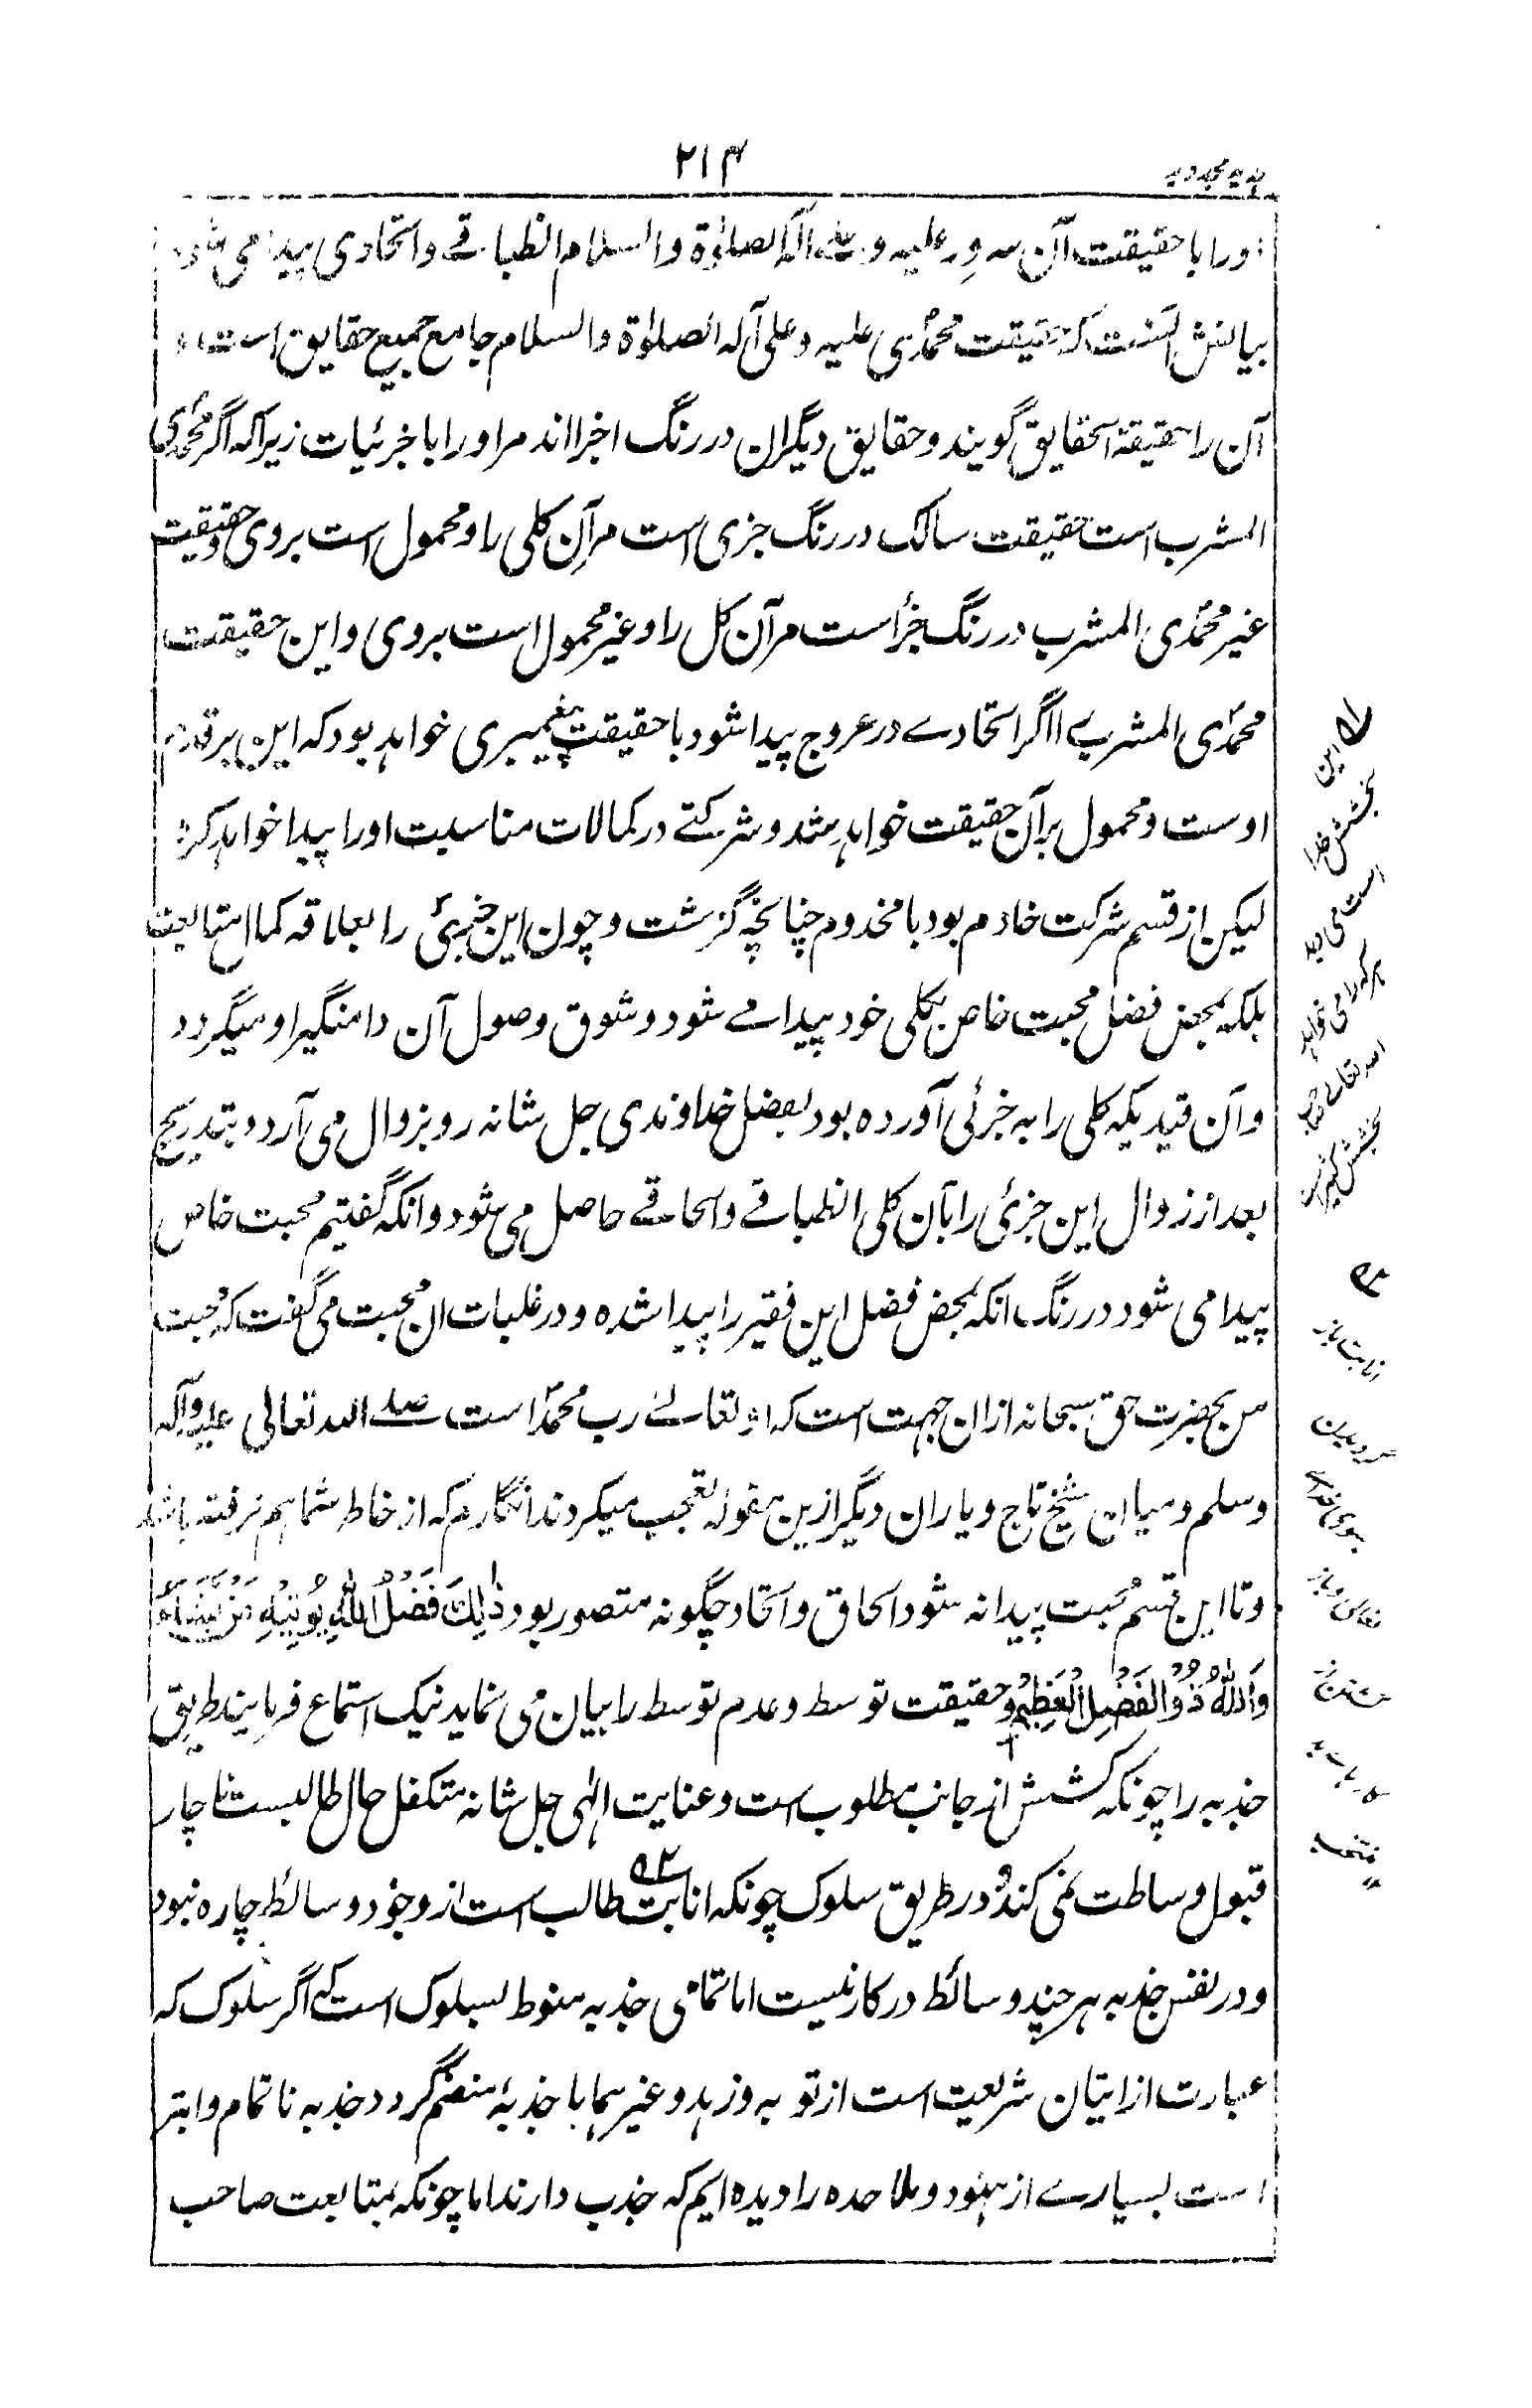 ہدیہ مجددیہ
۲۱۴
اورا با حقیقت آن سرور علیہ و علی آلہ الصلوٰۃ والسلام انطباقے و اتحادی پیدا می شود
بیانش آنست کہ حقیقت محمدی علیہ و علی آلہ الصلوٰۃ والسلام جامع جمیع حقایق است و
آن را حقیقۃ الحقایق گویند و حقایق دیگران در رنگ اجزا اند مر اورا یا جزئیات زیراکہ اگر محمدی
المشرب است حقیقت سالک در رنگ جزی است مر آن کلی را و محمول است بروی و حقیقت
غیر محمدی المشرب در رنگ جزء است مر آن کل را و غیر محمول است بروی و این حقیقت
محمدی المشرب را اگر اتحادے در عروج پیدا شود با حقیقت پیغمبری خواہد بود کہ این بر قدم
اوست و محمول بر آن حقیقت خواہد شد و شرکتے در کمالات مناسبت اورا پیدا خواہد کرد
لیکن از قسم شرکت خادم بود با مخدوم چنانچہ گزشت و چون این جزئی را بعلاقہ کمال متابعت
بلکہ بمحض فضل محبت خاص بکلی خود پیدا مے شود و شوق وصول آن دامنگیر او میگردد
و آن قیدیکہ کلی را بہ جزئی آوردہ بود بفضل خداوندی جل شانہ رو بزوال می آرد و بتدریج
بعد از زوال این جزئی را بآن کلی انطباقے و الحاقے حاصل می شود و انکہ گفتیم محبت خاص
پیدا می شود در رنگ انکہ بمحض فضل این فقیر را پیدا شدہ و در غلبات ان محبت می گفت کہ محبت
من بحضرت حق سبحانہ ازان جہت است کہ او تعالےٰ رب محمد است صلے اللہ تعالی علیہ و آلہ
وسلم و میان شیخ تاج و یاران دیگر ازین مقولہ تعجب میکردند انگارم کہ از خاطر شما ہم نرفتہ باشد
و تا این قسم محبت پیدا نہ شود الحاق و اتحاد چگونہ متصور بود ذٰلِكَ فَضْلُ اللّٰهِ يُؤْتِيْهِ مَنْ يَّشَآءُ
وَاللّٰهُ ذُو الْفَضْلِ الْعَظِيْمِ و حقیقت توسط و عدم توسط را بیان می نماید نیک استماع فرمایند طریق
جذبہ را چونکہ کشش از جانب مطلوب است و عنایت الٰہی جل شانہ متکفل حال طالبست ناچار
قبول وساطت نمی کند و در طریق سلوک چونکہ انابت طالب است از وجود وسائط چارہ نبود
و در نفس جذبہ ہر چند وسائط در کار نیست اما تمامی جذبہ منوط بسلوک است کہ اگر سلوک کہ
عبارت از اتیان شریعت است از توبہ و زہد و غیرہما با جذبہ منضم نگردد جذبہ ناتمام و ابتر
است بسیارے از ہنود و ملاحدہ را دیدہ ایم کہ جذب دارند اما چونکہ بمتابعت صاحب
این
بخشش خدا
است می دہد
ہر کہ را می خواہد
اللہ تعالے صاحب
بخشش بزرگ است
انابت باز
گردیدن
بسوی خدا